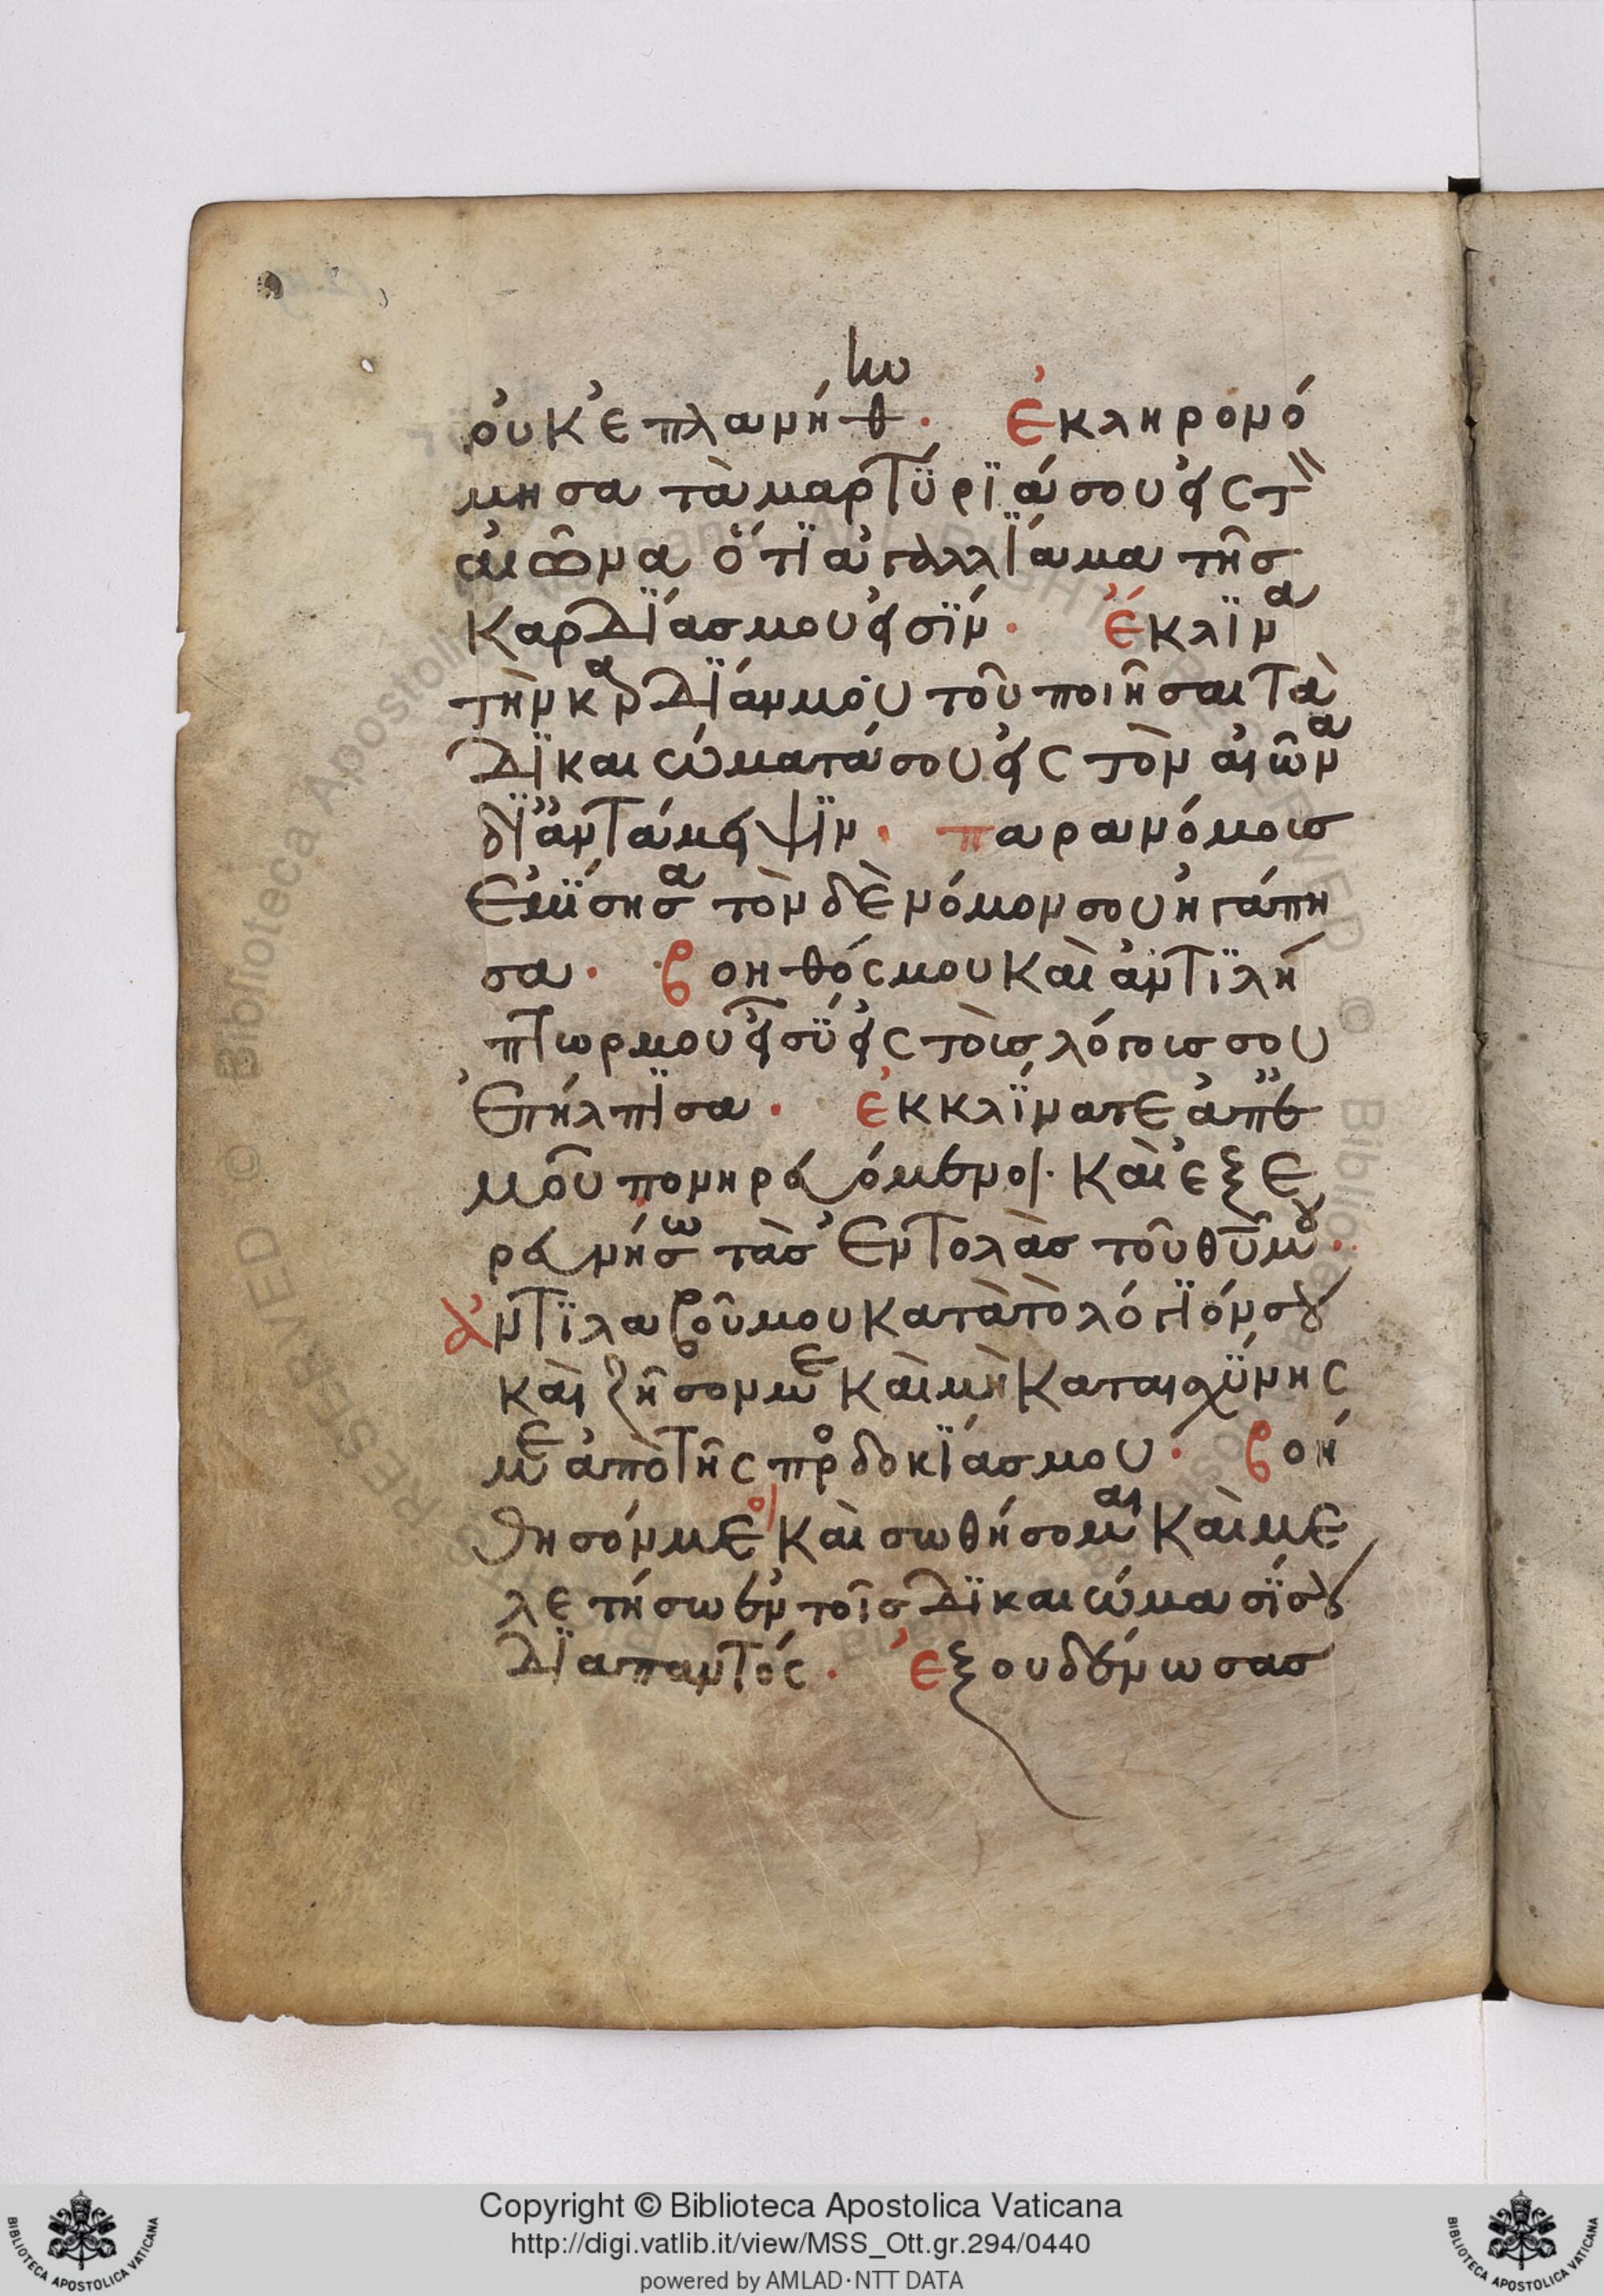 οὐκ ἐπλανήθην· Ἐκληρονό
μησα τὰ μαρτύριά σου εἰς τὸν
αἰῶνα ὅτι ἀγαλλίαμα τῆς
καρδίας μου εἰσίν· Ἔκλινα
τὴν καρδίαν μου τοῦ ποιῆσαι τὰ
δικαιώματά σου εἰς τὸν αἰῶνα
δι' ἀντάμειψιν· Παρανόμους
ἐμίσησα τὸν δὲ νόμον σου ἠγάπη
σα· Βοηθός μου καὶ ἀντιλή
πτωρ μου εἶ σὺ εἰς τοὺς λόγους σου
ἐπήλπισα· Ἐκκλίνατε ἀπ' ἐ
μοῦ πονηρευόμενοι· καὶ ἐξε
ρευνήσω τὰς ἐντολὰς τοῦ θῦ μου·
Ἀντιλαβοῦ μου κατὰ τὸ λόγιόν σου
καὶ ζῆσον με καὶ μὴ καταισχύνῃς
με ἀπὸ τῆς προσδοκίας μου· Βοή
θησόν μοι καὶ σωθήσομαι καὶ με
λετήσω ἐν τοῖς δικαιώμασί σου
διαπαντός· Ἐξουδένωσας
Copyright © Biblioteca Apostolica Vaticana
http://digi.vatlib.it/view/MSS_Ott.gr.294/0440
powered by AMLAD·NTT DATA